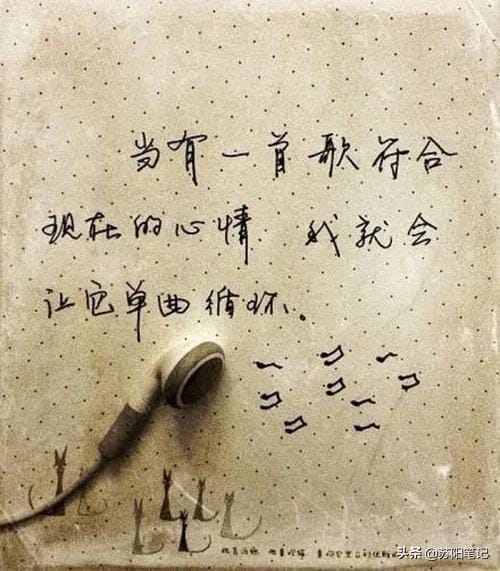 当有一首歌符合
现在的心情 我就会
让它单曲循环。
头条@苏阳笔记